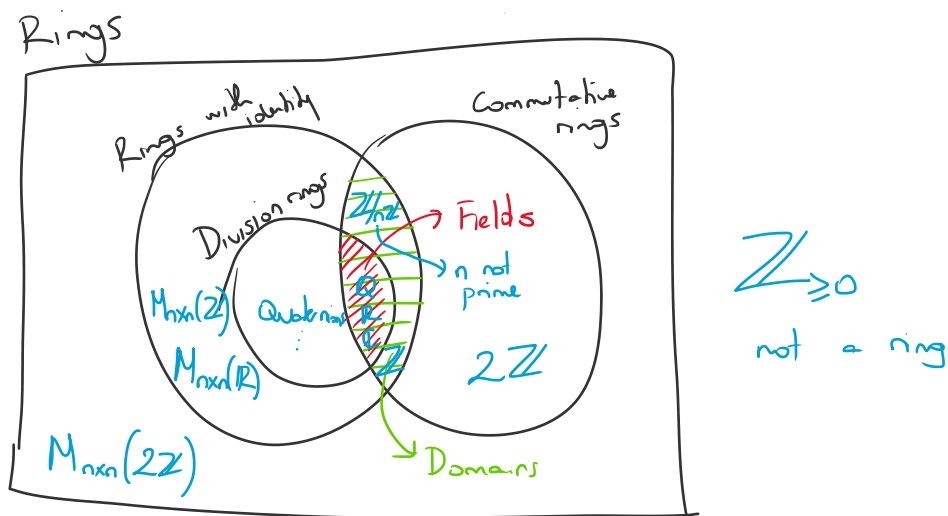 Rings
Rings with identity
Commutative
rings
Division rings
ℤ/nℤ
Fields
n not
prime
M_{n×n}(ℤ)
M_{n×n}(ℝ)
Quaternions
⋮
ℚ
ℝ
ℂ
ℤ
2ℤ
Domains
M_{n×n}(2ℤ)
ℤ_{≥0}
not a ring